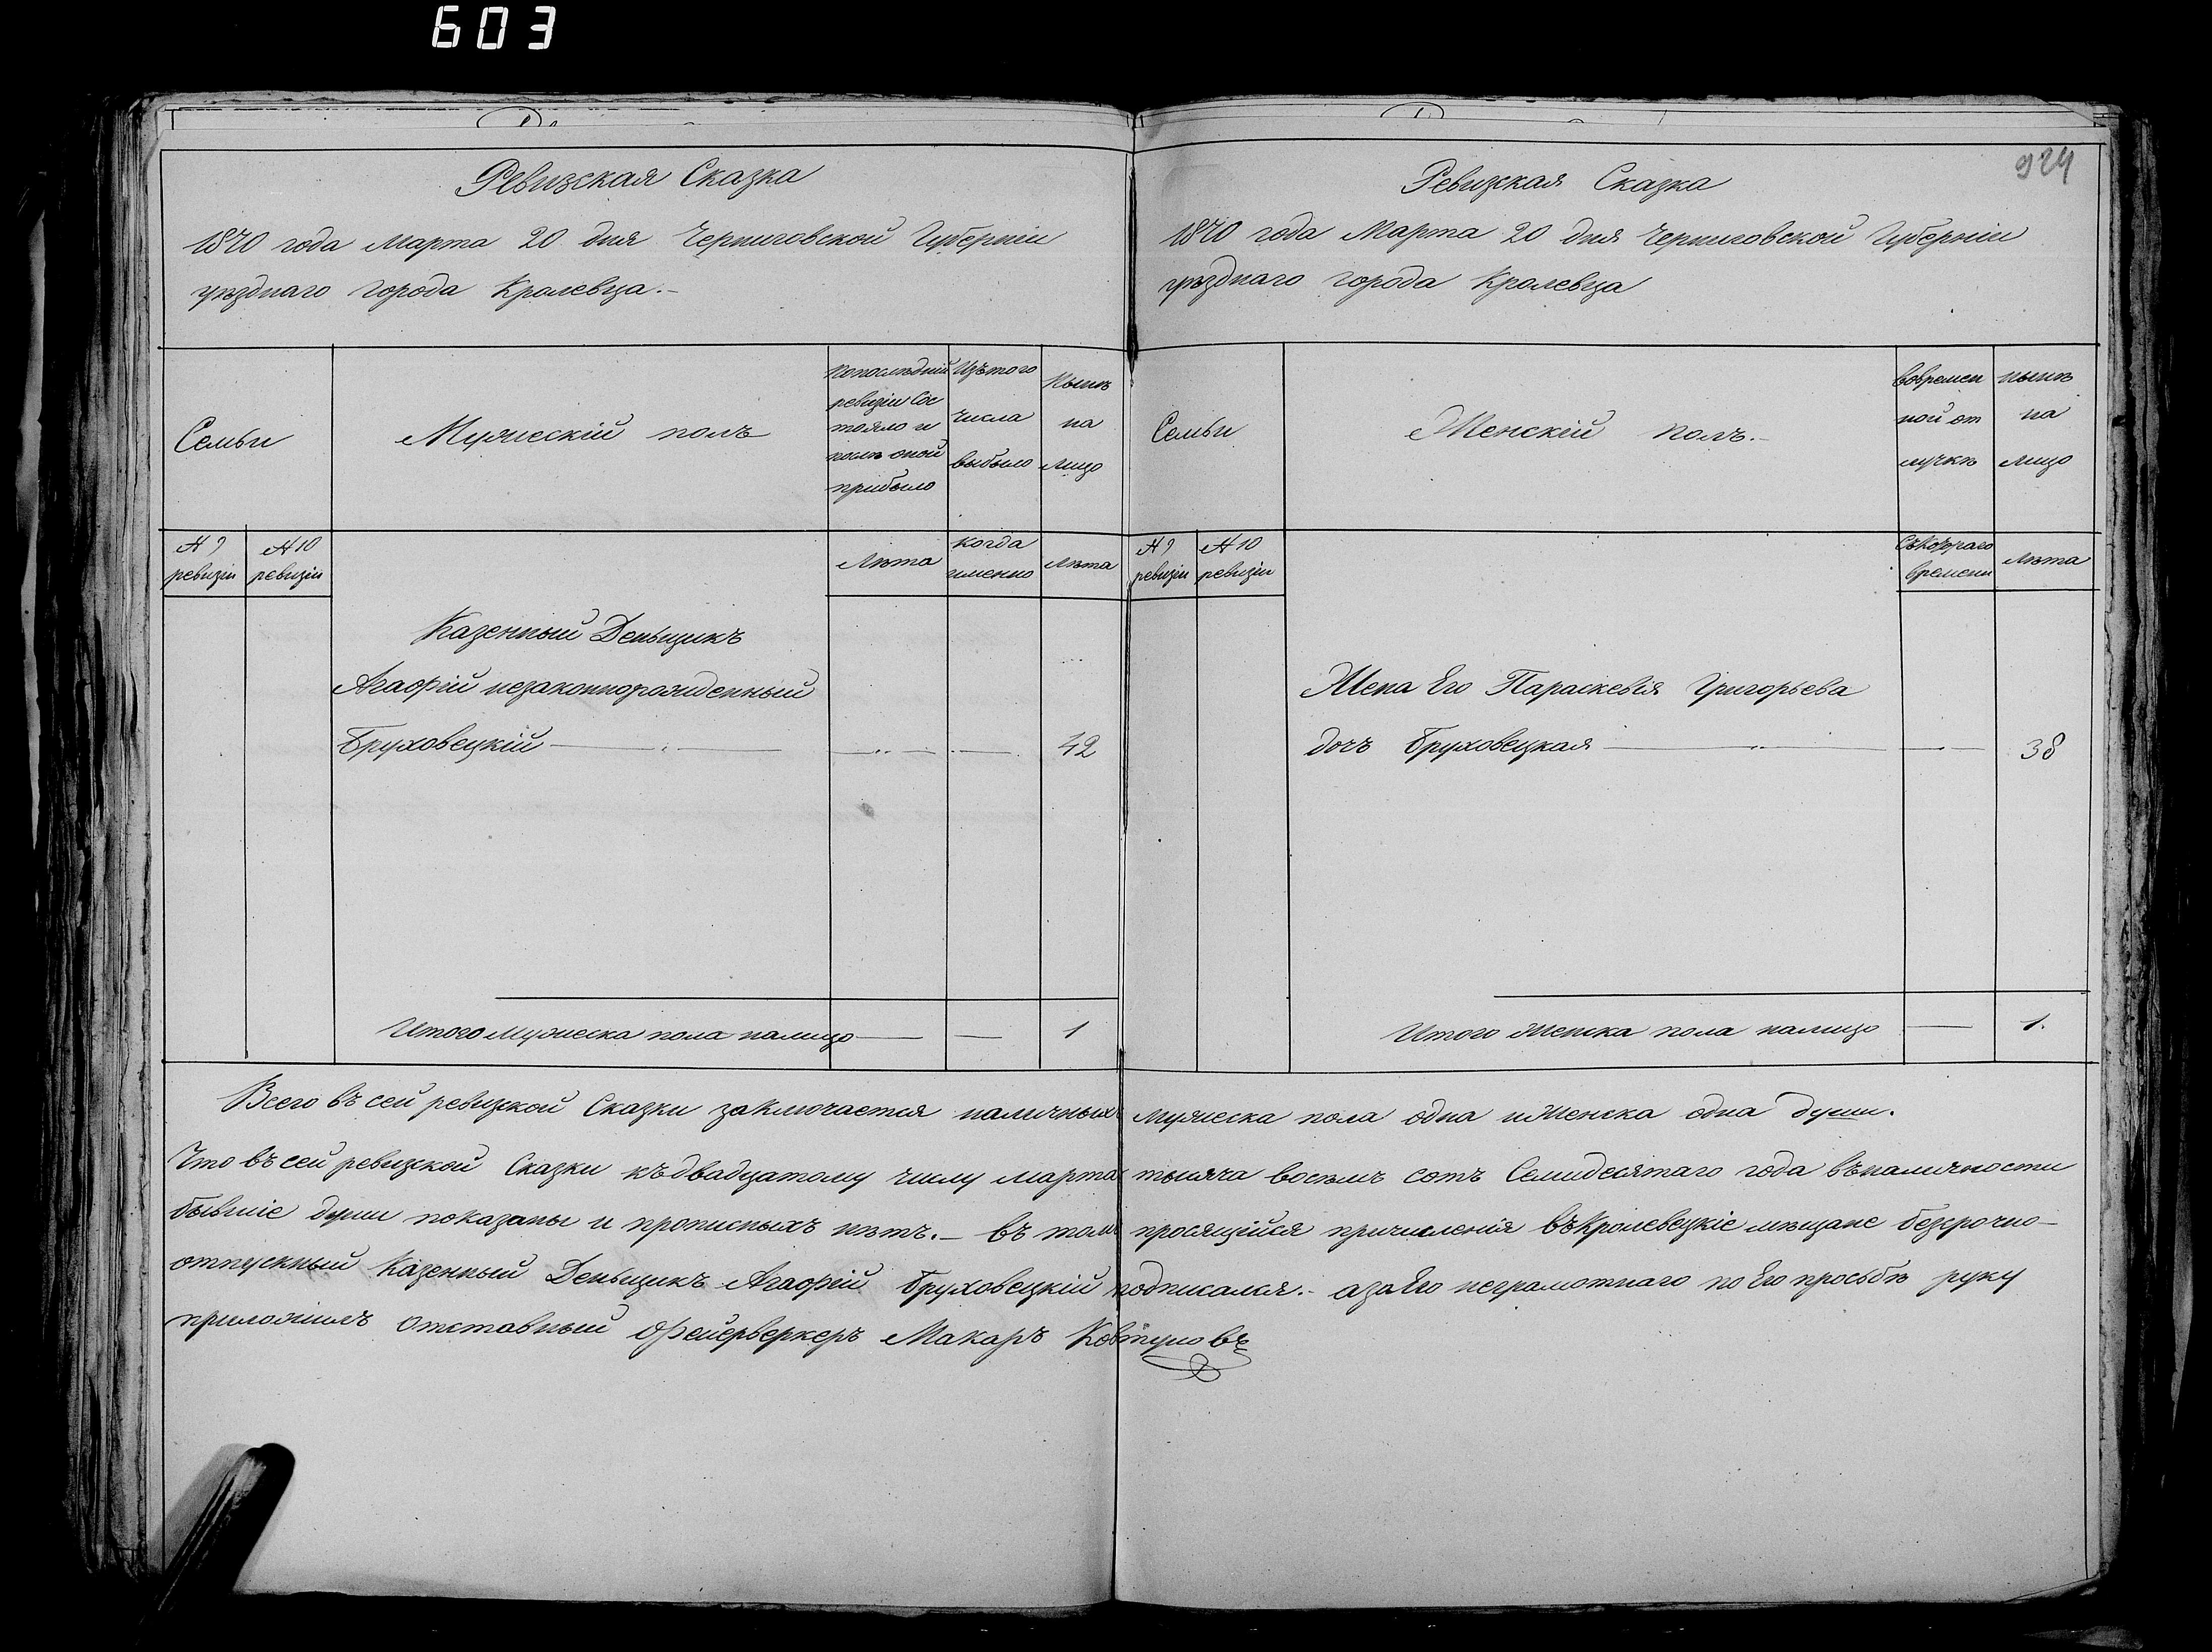 603
924
Ревизская Сказка
1870 года Марта 20 дня Черниговской Губерніи
уѣзднаго города Кролевца.-
Семьи
Мужескій полъ
Попослѣдній
ревизіи Сос
тояло и
послѣ оной
прибыло
Изътого
числа
выбыло
Нынѣ
на
лицо
№ 9
ревизіи
№ 10
ревизіи
Лѣта
когда
именно
Лѣта
Казенный Деньщикъ
Агафій незаконнорожденный
Бруховецкій
42
Итого мужеска пола налицо — — 1
Ревизская Сказка
1870 года Марта 20 дня Черниговской Губерніи
уѣзднаго города Кролевца
Семьи
Женскій полъ.-
вовремен
ной от
лучкѣ
нынѣ
на
лицо
№ 9
ревизіи
№ 10
ревизіи
Съкотораго
времени
Лѣта
Жена Его Параскевія Григорьева
дочъ Бруховецкая — 38
Итого Женска пола налицо — 1.
Всего въ сей ревизской Сказки заключается наличныхъ мужеска пола одна и Женска одна души.
Что въ сей ревизской Сказки къ двадцатому числу марта тысяча восемъ сотъ Семидесятаго года въ наличности
бывшіе души показаны и прописныхъ нѣтъ.- въ томъ просящійся причисленія въ Кролевецкіе мѣщане безсрочно-
отпускный Казенный Деньщикъ Агафій Бруховецкій подписался.- а за Его неграмотнаго по Его просьбѣ руку
приложилъ отставный Фейерверкеръ Макаръ Ковтуновъ